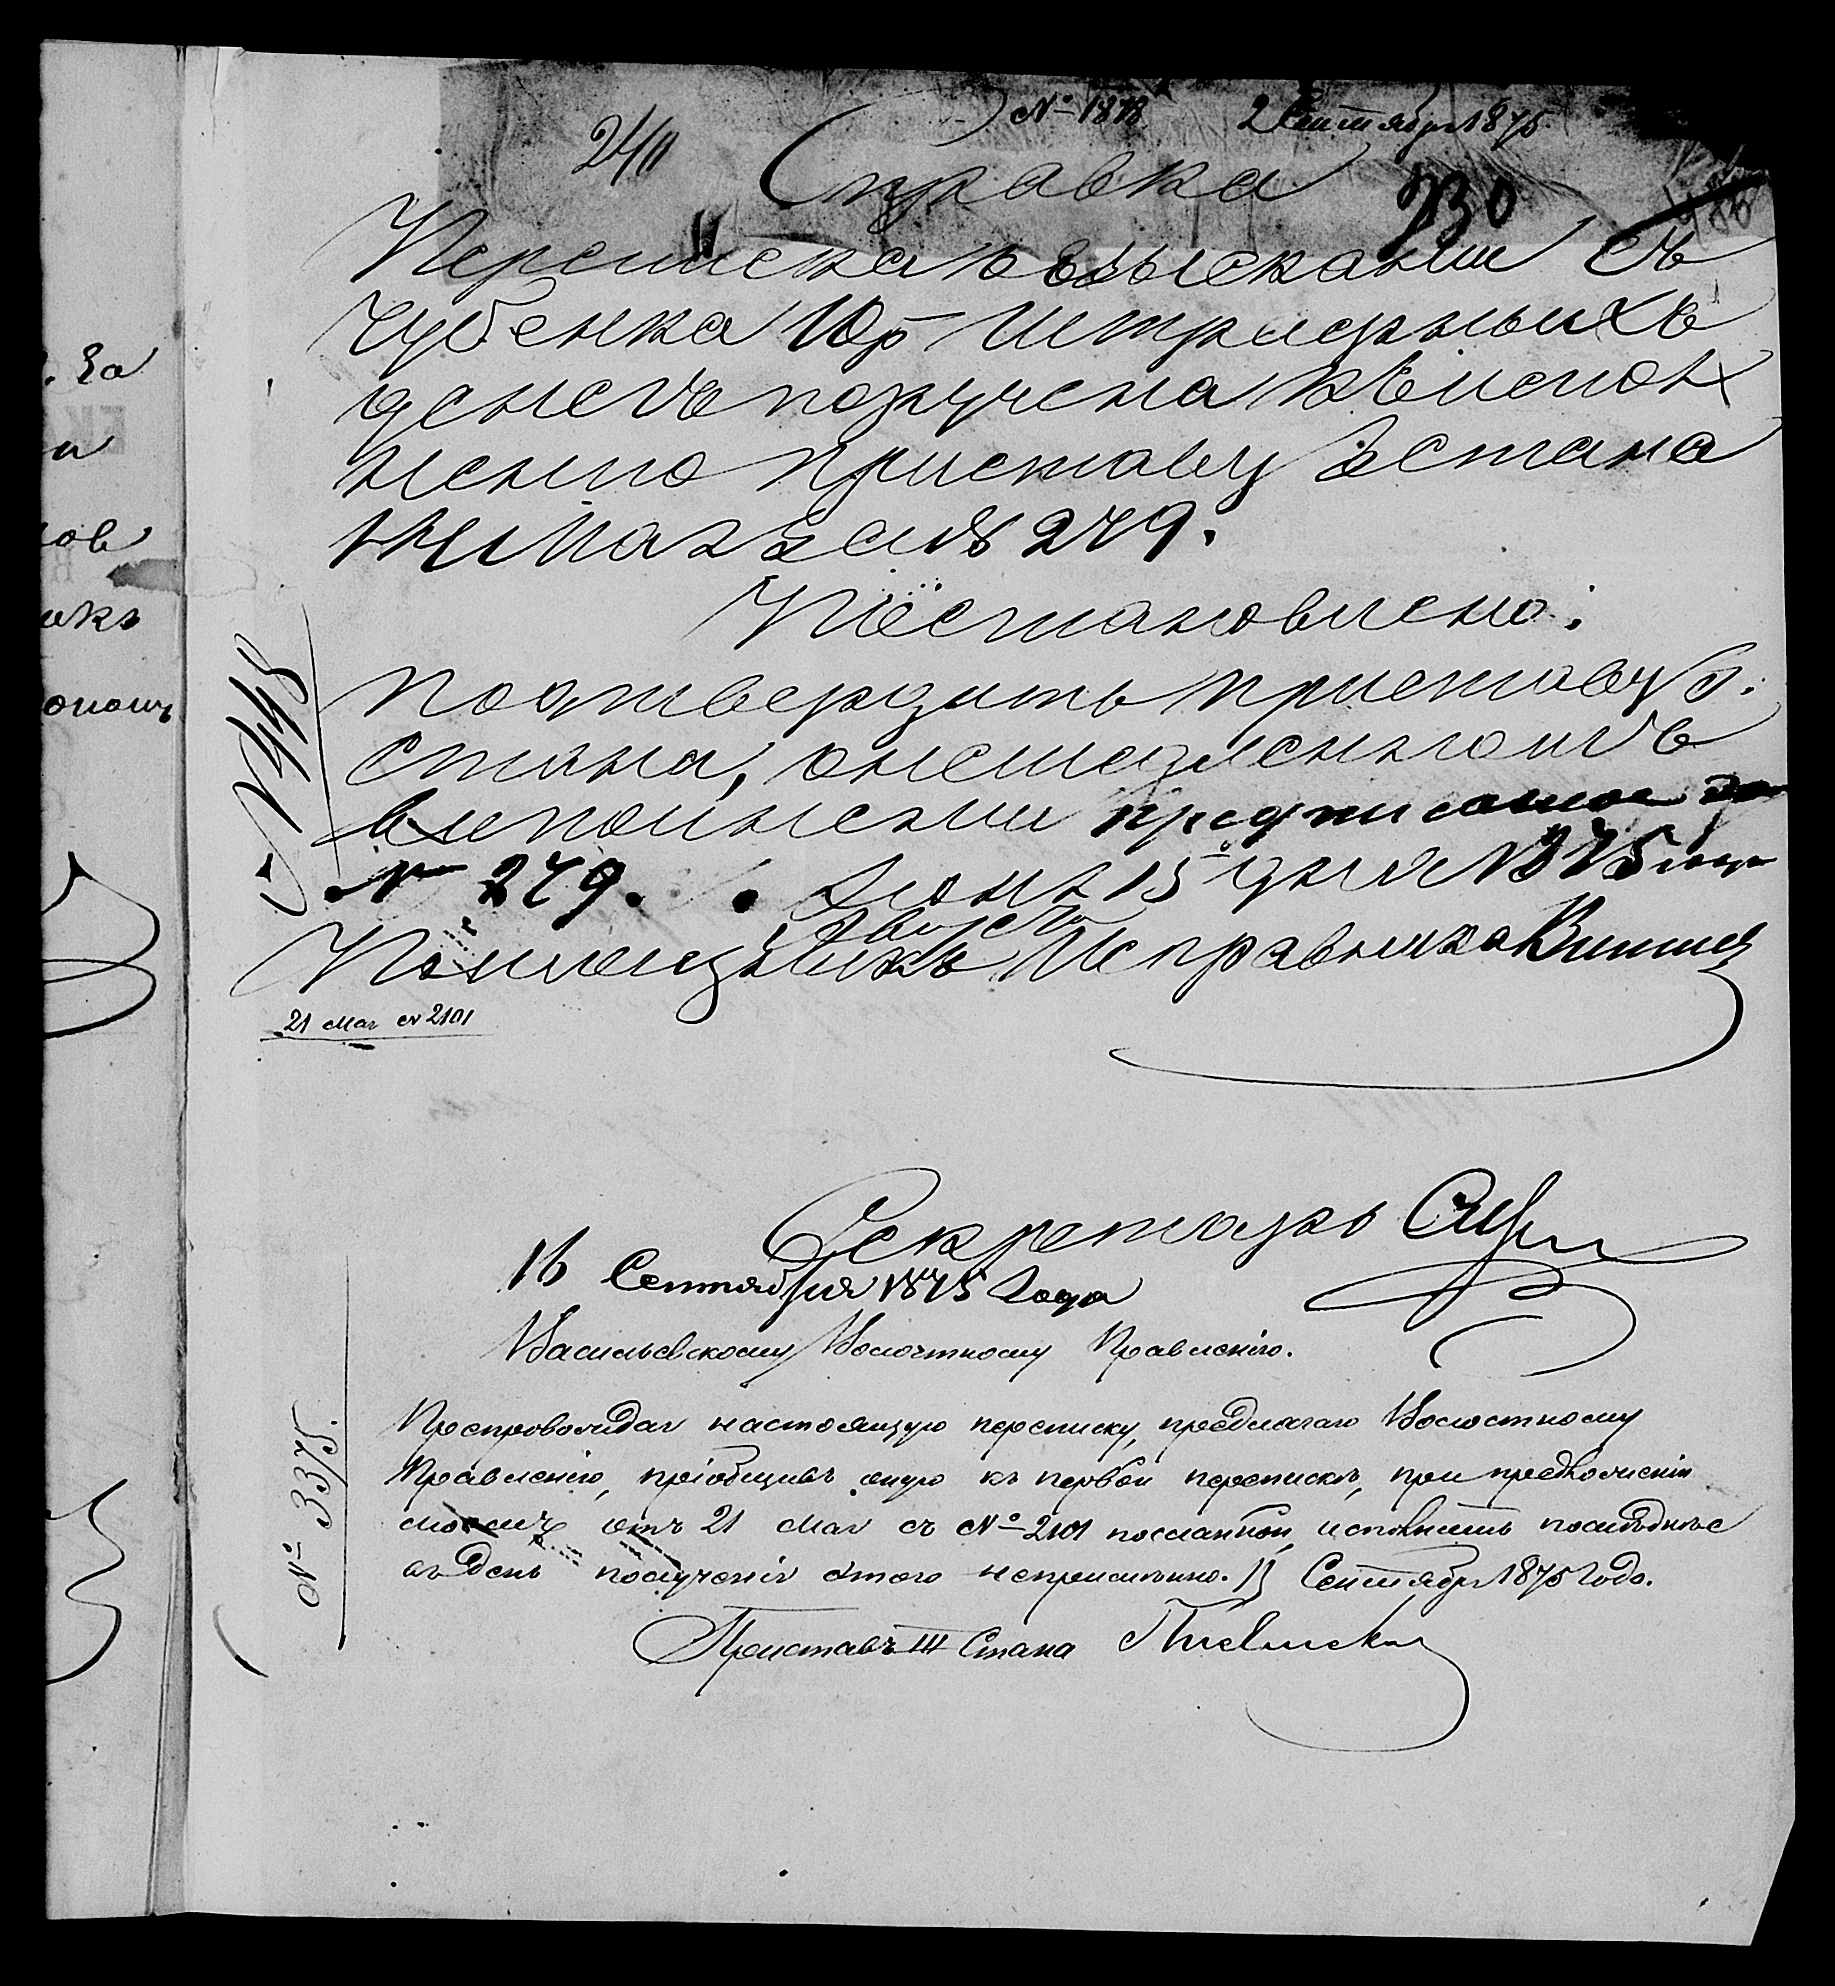 № 1878 2 Сентября 1875
240
Справка
730
Переписка о взысканіи съ
Чубенка 10 р штрафныхъ
денегъ поручена къ испол
ненію приставу 3 стана
Мая за № 279.
Постановлено:
подтвердить приставу 3.
стана, о немедленномъ
выполненіи предписанія за
№ 279. Августа 15 дня 1875 года
Помощникъ Исправника
21 Мая № 2101
Секретарь
16 Сентября 1875 Года
Васильевскому Волостному Правленію.
№ 3375.
Препровождая настоящую переписку, предлагаю Волостному
Правленію, пріобщивъ оную къ первой перепискѣ, при предложеніи
моемъ отъ 21 Мая съ № 2101 посланной, исполнить послѣднее
въ день полученія этого непремѣнно. Сентября 1875 Года.
Приставъ III Стана
за
а
ов
икъ